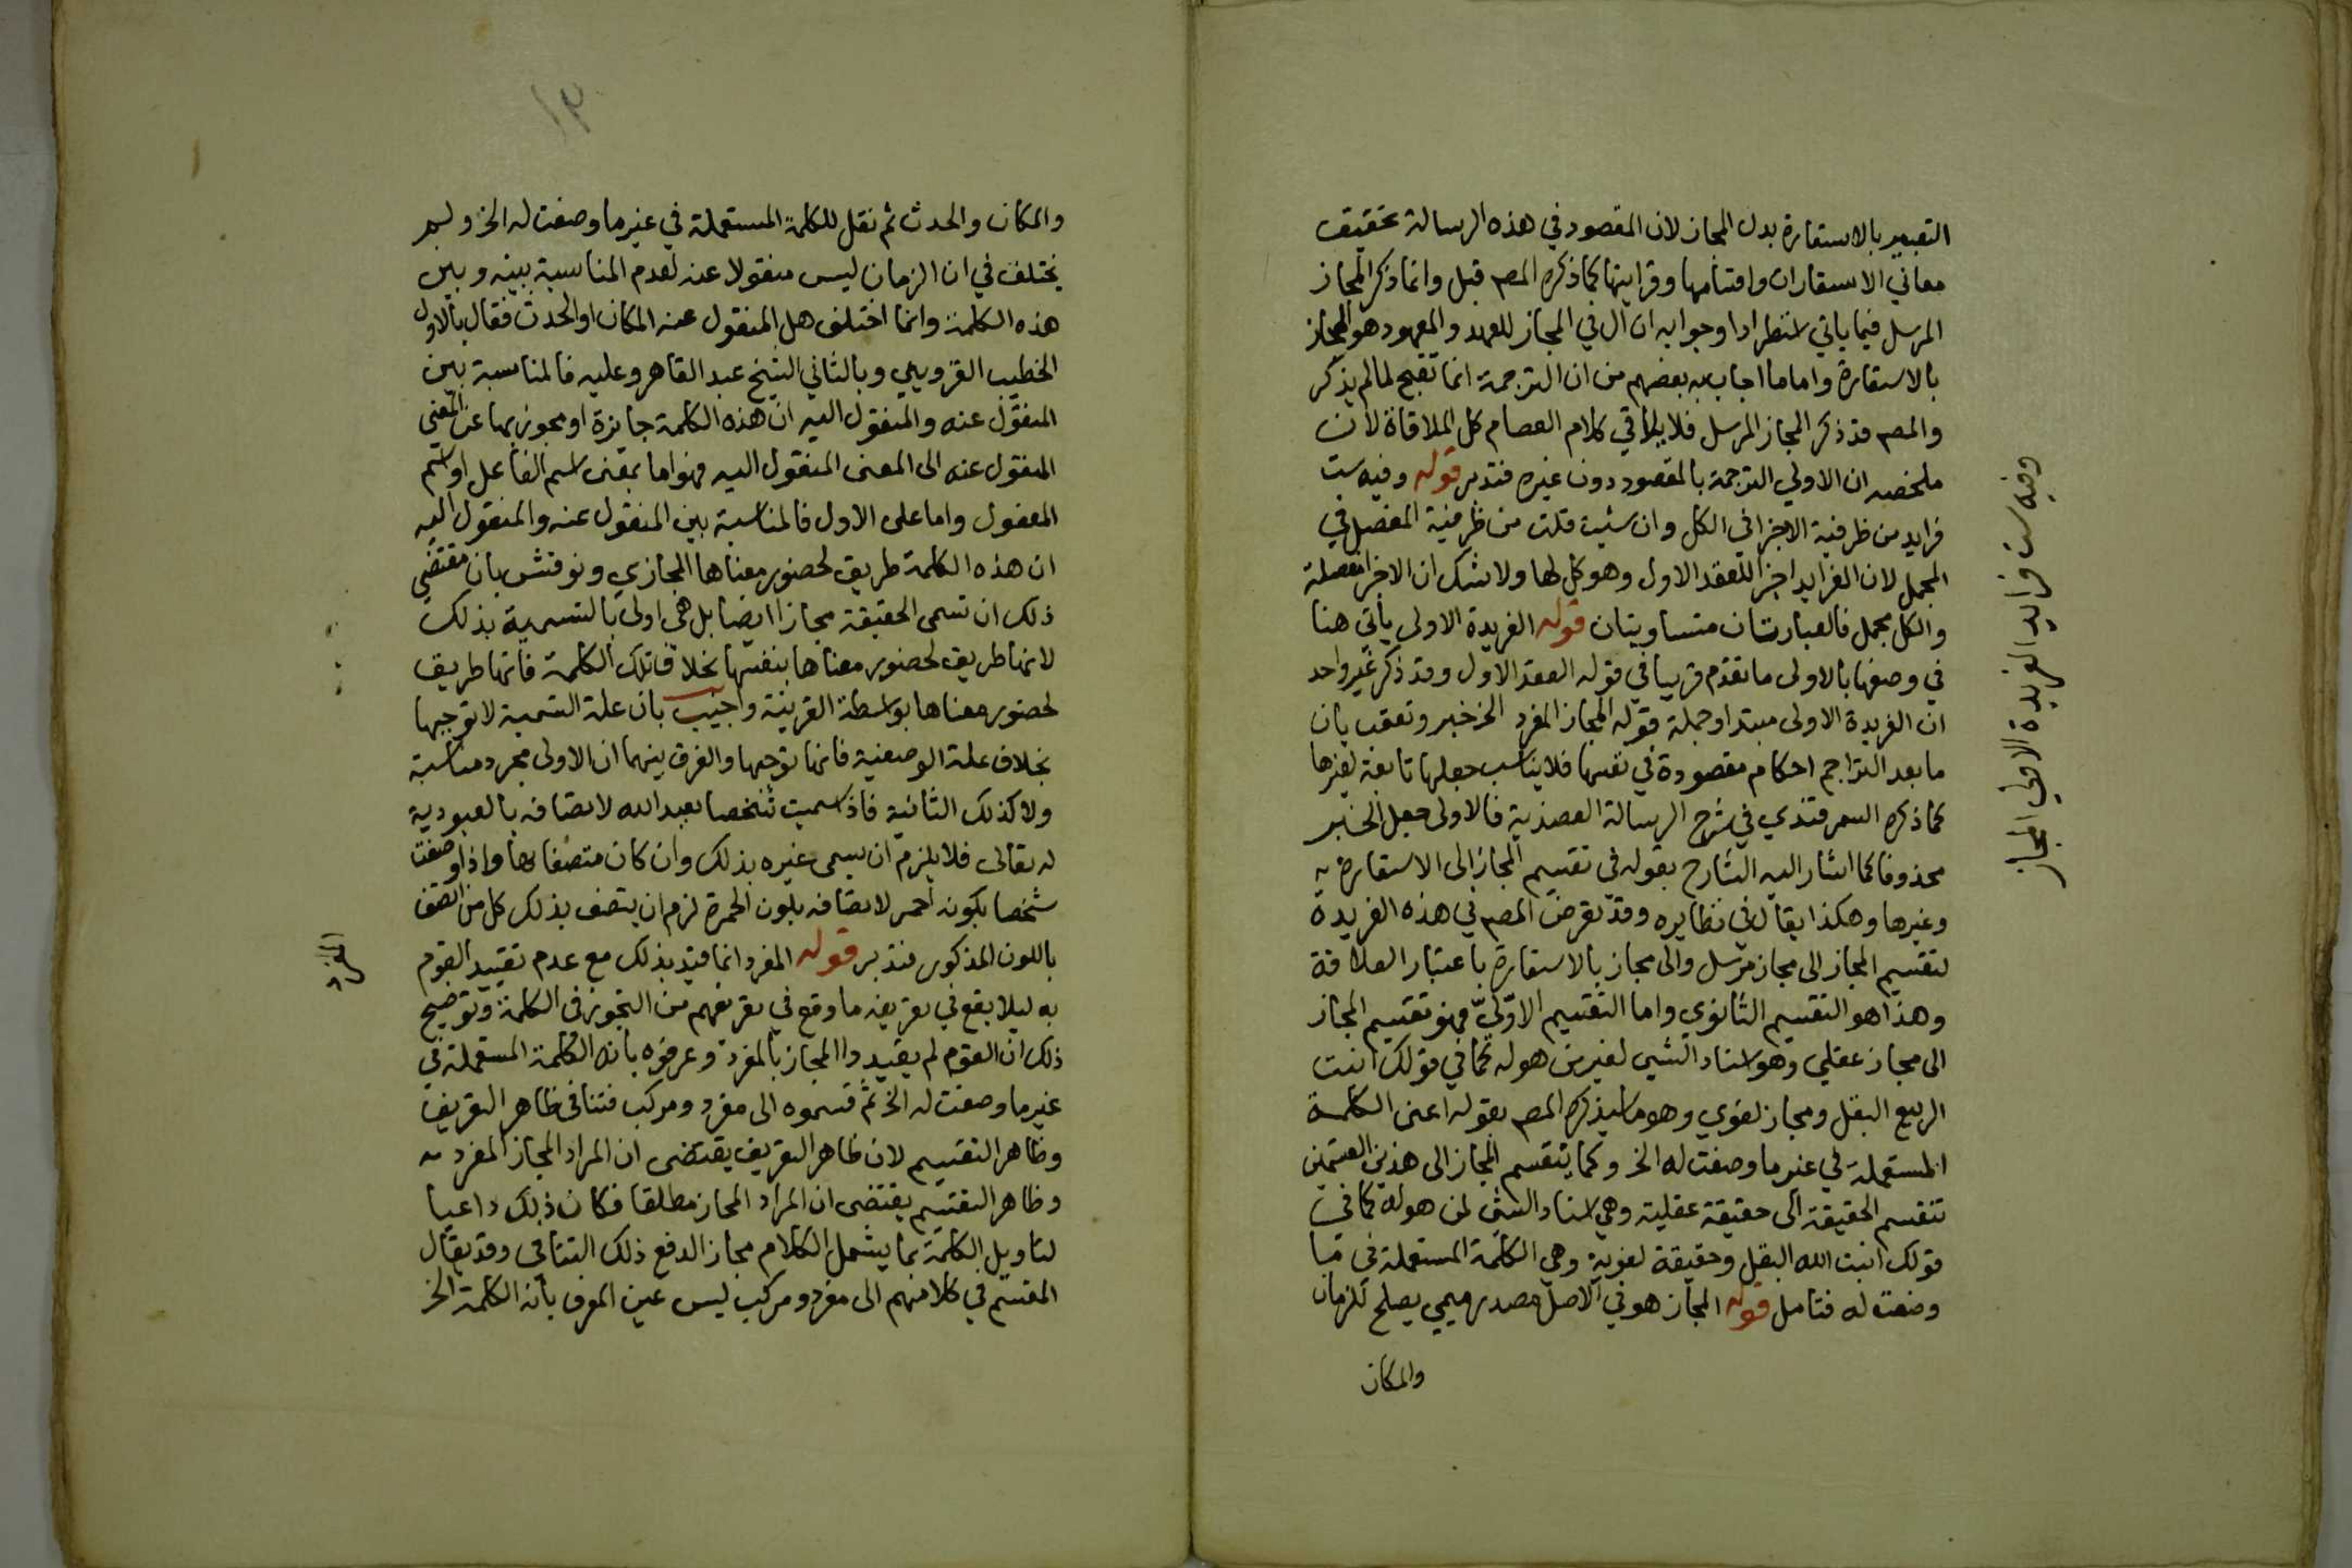 التعبير بالاستعارة بدل المجاز لان المقصود في هذه الرسالة تحقيق
معاني الاستعارات واقسامها وقراينها كما ذكره المص قبل وانما ذكر المجاز
المرسل فيما ياتي استطرادا وجوابه ان ال في المجاز للعهد والمعهود هو المجاز
بالاستعارة واما ما اجاب به بعضهم من ان الترجمة انما تقبح لما لم يذكر
والمص قد ذكر المجاز المرسل فلا يلاقي كلام العصام كل الملاقاة لان
ملخصه ان الاولي الترجمة بالمقصود دون غيره فتدبر قوله وفيه ست
فرايد من ظرفية الاجزا في الكل وان شيت قلت من ظرفية المفصل في
المجمل لان الفرايد اجزا للعقد الاول وهو كل لها ولا شك ان الاجزا مفصلة
والكل مجمل فالعبارتان متساويتان قوله الفريدة الاولى يأتي هنا
في وصفها بالاولى ما تقدم قريبا في قوله العقد الاول وقد ذكر غير واحد
ان الفريدة الاولى مبتدا وجملة قوله المجاز المفرد الخ خبر وتعقب بان
ما بعد التراجم احكام مقصودة في نفسها فلا يناسب جعلها تابعة لغيرها
كما ذكره السمرقندي في شرح الرسالة العضدية فالاولى جعل الخبر
محذوفا كما اشار اليه الشارح بقوله في تقسيم المجاز الى الاستعارة
وغيرها وهكذا يقال في نظايره وقد تعرض المص في هذه الفريدة
لتقسيم المجاز الى مجاز مرسل والى مجاز بالاستعارة باعتبار العلاقة
وهذا هو التقسيم الثانوي واما التقسيم الاوّليّ فهو تقسيم المجاز
الى مجاز عقلي وهو اسناد الشي لغير من هو له كما في قولك انبت
الربيع البقل ومجاز لغوي وهو ما سيذكره المص بقوله اعنى الكلمة
المستعملة في غير ما وضعت له الخ وكما ينقسم المجاز الى هذين القسمين
تنقسم الحقيقة الى حقيقة عقلية وهي اسناد الشي لمن هو له كما في
قولك انبت الله البقل وحقيقة لغوية وهي الكلمة المستعملة في ما
وضعت له فتامل قوله المجاز هو في الاصل مصدر ميمي يصلح للزمان
والمكان
وفيه ست فرايد الفريدة الاولي المجاز
١٣
والمكان والحدث ثم نقل للكلمة المستعملة في غير ما وضعت له الخ ولم
يختلف في ان الزمان ليس منقولا عنه لعدم المناسبة بينه وبين
هذه الكلمة وانما اختلف هل المنقول عنه المكان او الحدث فقال بالاول
الخطيب القزويني وبالثاني الشيخ عبد القاهر وعليه فالمناسبة بين
المنقول عنه والمنقول اليه ان هذه الكلمة جايزة او مجوز بها عن المعني
المنقول عنه الى المعنى المنقول اليه فهو اما بمعنى اسم الفاعل او اسم
المفعول واما على الاول فالمناسبة بين المنقول عنه والمنقول اليه
ان هذه الكلمة طريق لحضور معناها المجازي ونوقش بان مقتضي
ذلك ان تسمى الحقيقة مجازا ايضا بل هي اولى بالتسمية بذلك
لانها طريق لحضور معناها بنفسها بخلاف تلك الكلمة فانها طريق
لحضور معناها بواسطة القرينة واجيب بان علة التسمية لا توجبها
بخلاف علة الوصفية فانها توجبها والفرق بينهما ان الاولى مجرد مناسبة
ولا كذلك الثانية فاذا سميت شخصا بعبد الله لاتصافه بالعبودية
له تعالى فلا يلزم ان يسمى غيره بذلك وان كان متصفا بها واذا وصفت
شخصا بكونه احمر لاتصافه بلون الحمرة لزم ان يتصف بذلك كل من اتصف
باللون المذكور فتدبر قوله المفرد انما قيد بذلك مع عدم تقييد القوم
به ليلا يقع في تعريفه ما وقع في تعريفهم من التجوز في الكلمة وتوضيح
ذلك ان القوم لم يقيدوا المجاز بالمفرد وعرفوه بانه الكلمة المستعملة في
غير ما وضعت له الخ ثم قسموه الى مفرد ومركب فتنافى ظاهر التعريف
وظاهر التقسيم لان ظاهر التعريف يقتضى ان المراد المجاز المفرد
وظاهر التقسيم يقتضى ان المراد المجاز مطلقا فكان ذلك داعيا
لتاويل الكلمة بما يشمل الكلام مجازا لدفع ذلك التنافى وقد يقال
المقسم في كلامهم الى مفرد ومركب ليس عين المعرف بأنه الكلمة الخ